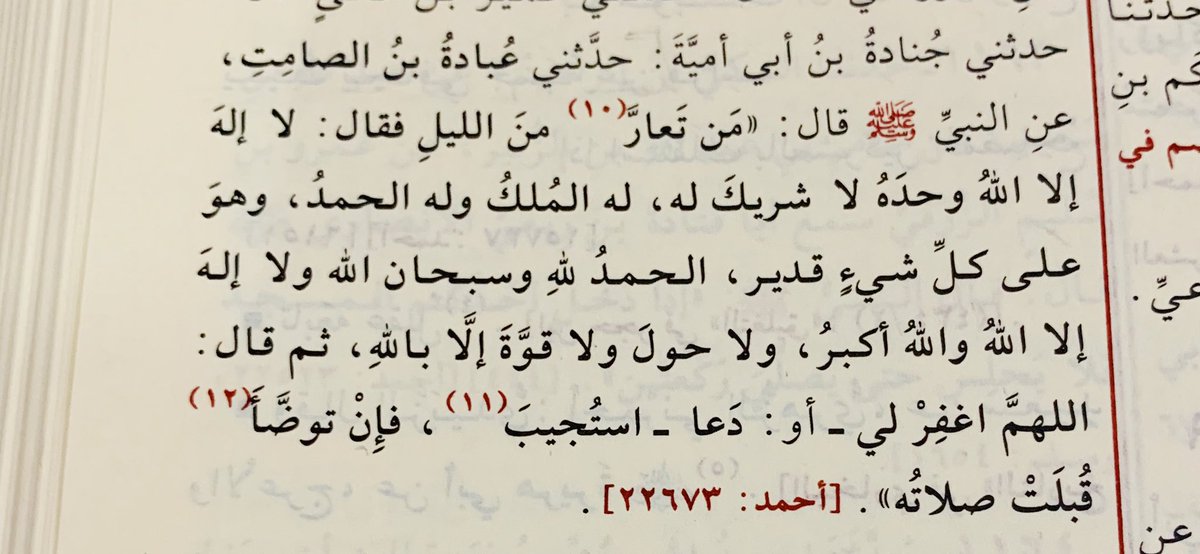 حدثني جُنادةُ بنُ أبي أميَّةَ: حدَّثني عُبادةُ بنُ الصامِتِ،
عنِ النبيِّ ﷺ قال: «مَن تَعارَّ(١٠) منَ الليلِ فقال: لا إلهَ
إلا اللهُ وحدَهُ لا شريكَ له، له المُلكُ وله الحمدُ، وهوَ
على كلِّ شيءٍ قدير، الحمدُ للهِ وسبحان الله ولا إلهَ
إلا اللهُ واللهُ أكبرُ، ولا حولَ ولا قوَّةَ إلَّا باللهِ، ثم قال:
اللهمَّ اغفِرْ لي ـ أو: دَعا ـ استُجيبَ(١١)، فإِنْ توضَّأَ(١٢)
قُبلَتْ صلاتُه». [أحمد: ٢٢٦٧٣].
حدثنا
كم بنِ
في
عيِّ.
عن